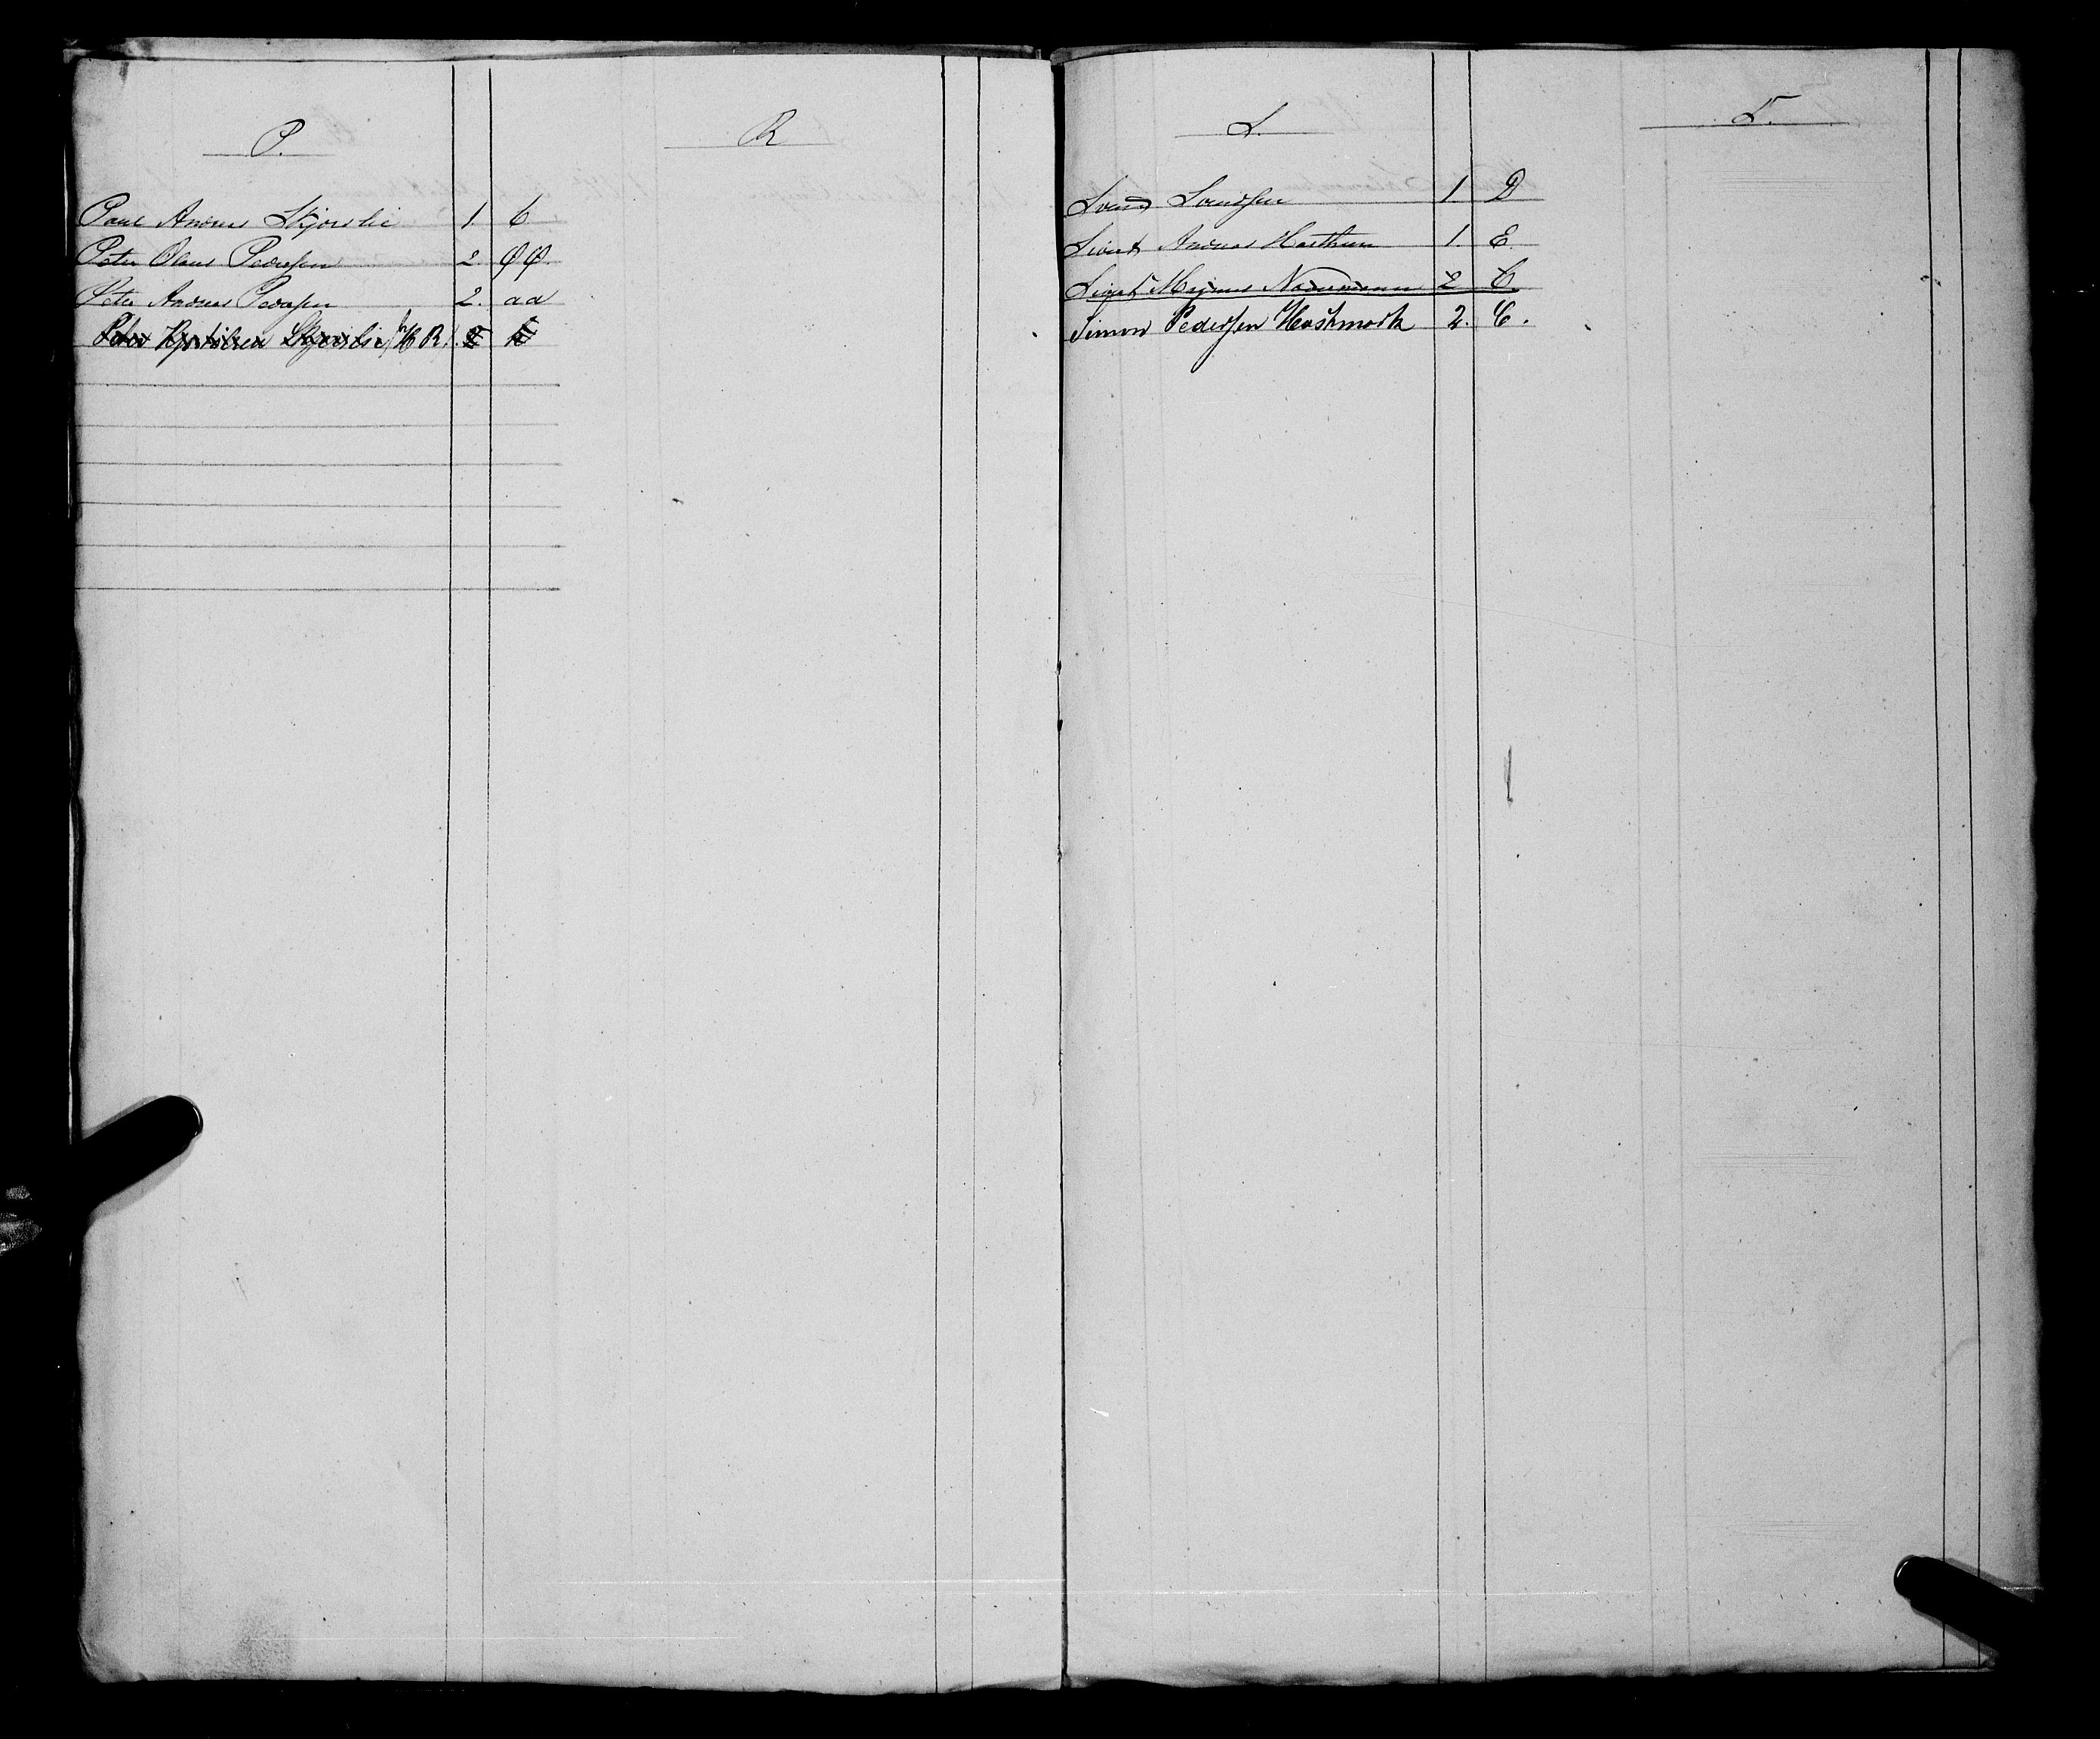 P.
Paul Andreas Skjørslie 1. C.
Peter Olaus Pedersen 2. ØØ.
Peter Andreas Pedersen 2. aa
Peder Skjørslie
R
S.
Svend Svendsen 1. D
Sivert Andreas Harthun 1. E.
Sivert Magnus Nordermann 2 C.
Simon Pedersen Hoshmark 2. C.
T.